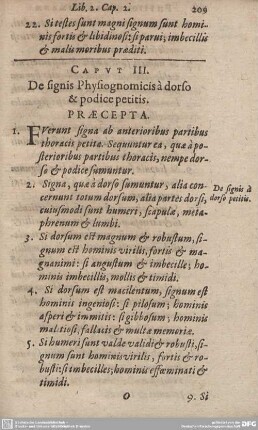 Lib. 2. Cap. 2. 209
22. Si testes sunt magni signum sunt homi-
nis fortis & libidinosi: si parui; imbecillis
& malis moribus præditi.
CAPVT III.
De signis Physiognomicis à dorso
& podice petitis.
PRÆCEPTA.
1. Fverunt signa ab anterioribus partibus
thoracis petita. Sequuntur ea, quæ à po-
sterioribus partibus thoracis, nempe dor-
so & podice sumuntur.
2. Signa, quæ à dorso sumuntur, alia con-
cernunt totum dorsum, alia partes dorsi,
cuiusmodi sunt humeri, scapulæ, meta-
phrenum & lumbi.
De signis à
dorso petitis.
3. Si dorsum est magnum & robustum, si-
gnum est hominis virilis, fortis & ma-
gnanimi: si angustum & imbecille; ho-
minis imbecillis, mollis & timidi.
4. Si dorsum est macilentum, signum est
hominis ingeniosi: si pilosum; hominis
asperi & immitis: si gibbosum; hominis
malitiosi, fallacis & multæ memoriæ.
5. Si humeri sunt valde validi & robusti, si-
gnum sunt hominis virilis, fortis & ro-
busti: si imbecilles; hominis effœminati &
timidi.
O 9. Si